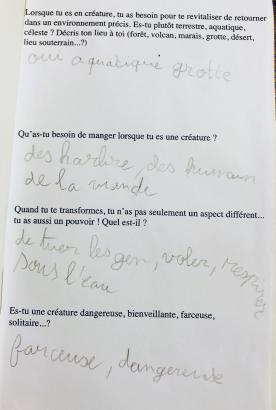 Lorsque tu es en créature, tu as besoin pour te revitaliser de retourner
dans un environnement précis. Es-tu plutôt terrestre, aquatique,
céleste ? Décris ton lieu à toi (forêt, volcan, marais, grotte, désert,
lieu souterrain...?)
oui aquatique grotte
Qu'as-tu besoin de manger lorsque tu es une créature ?
des hardire, des humain
de la viande
Quand tu te transformes, tu n'as pas seulement un aspect différent...
tu as aussi un pouvoir ! Quel est-il ?
de tuer les gen, voler, respirer
sous l'eau
Es-tu une créature dangereuse, bienveillante, farceuse,
solitaire...?
farceuse, dangereuse